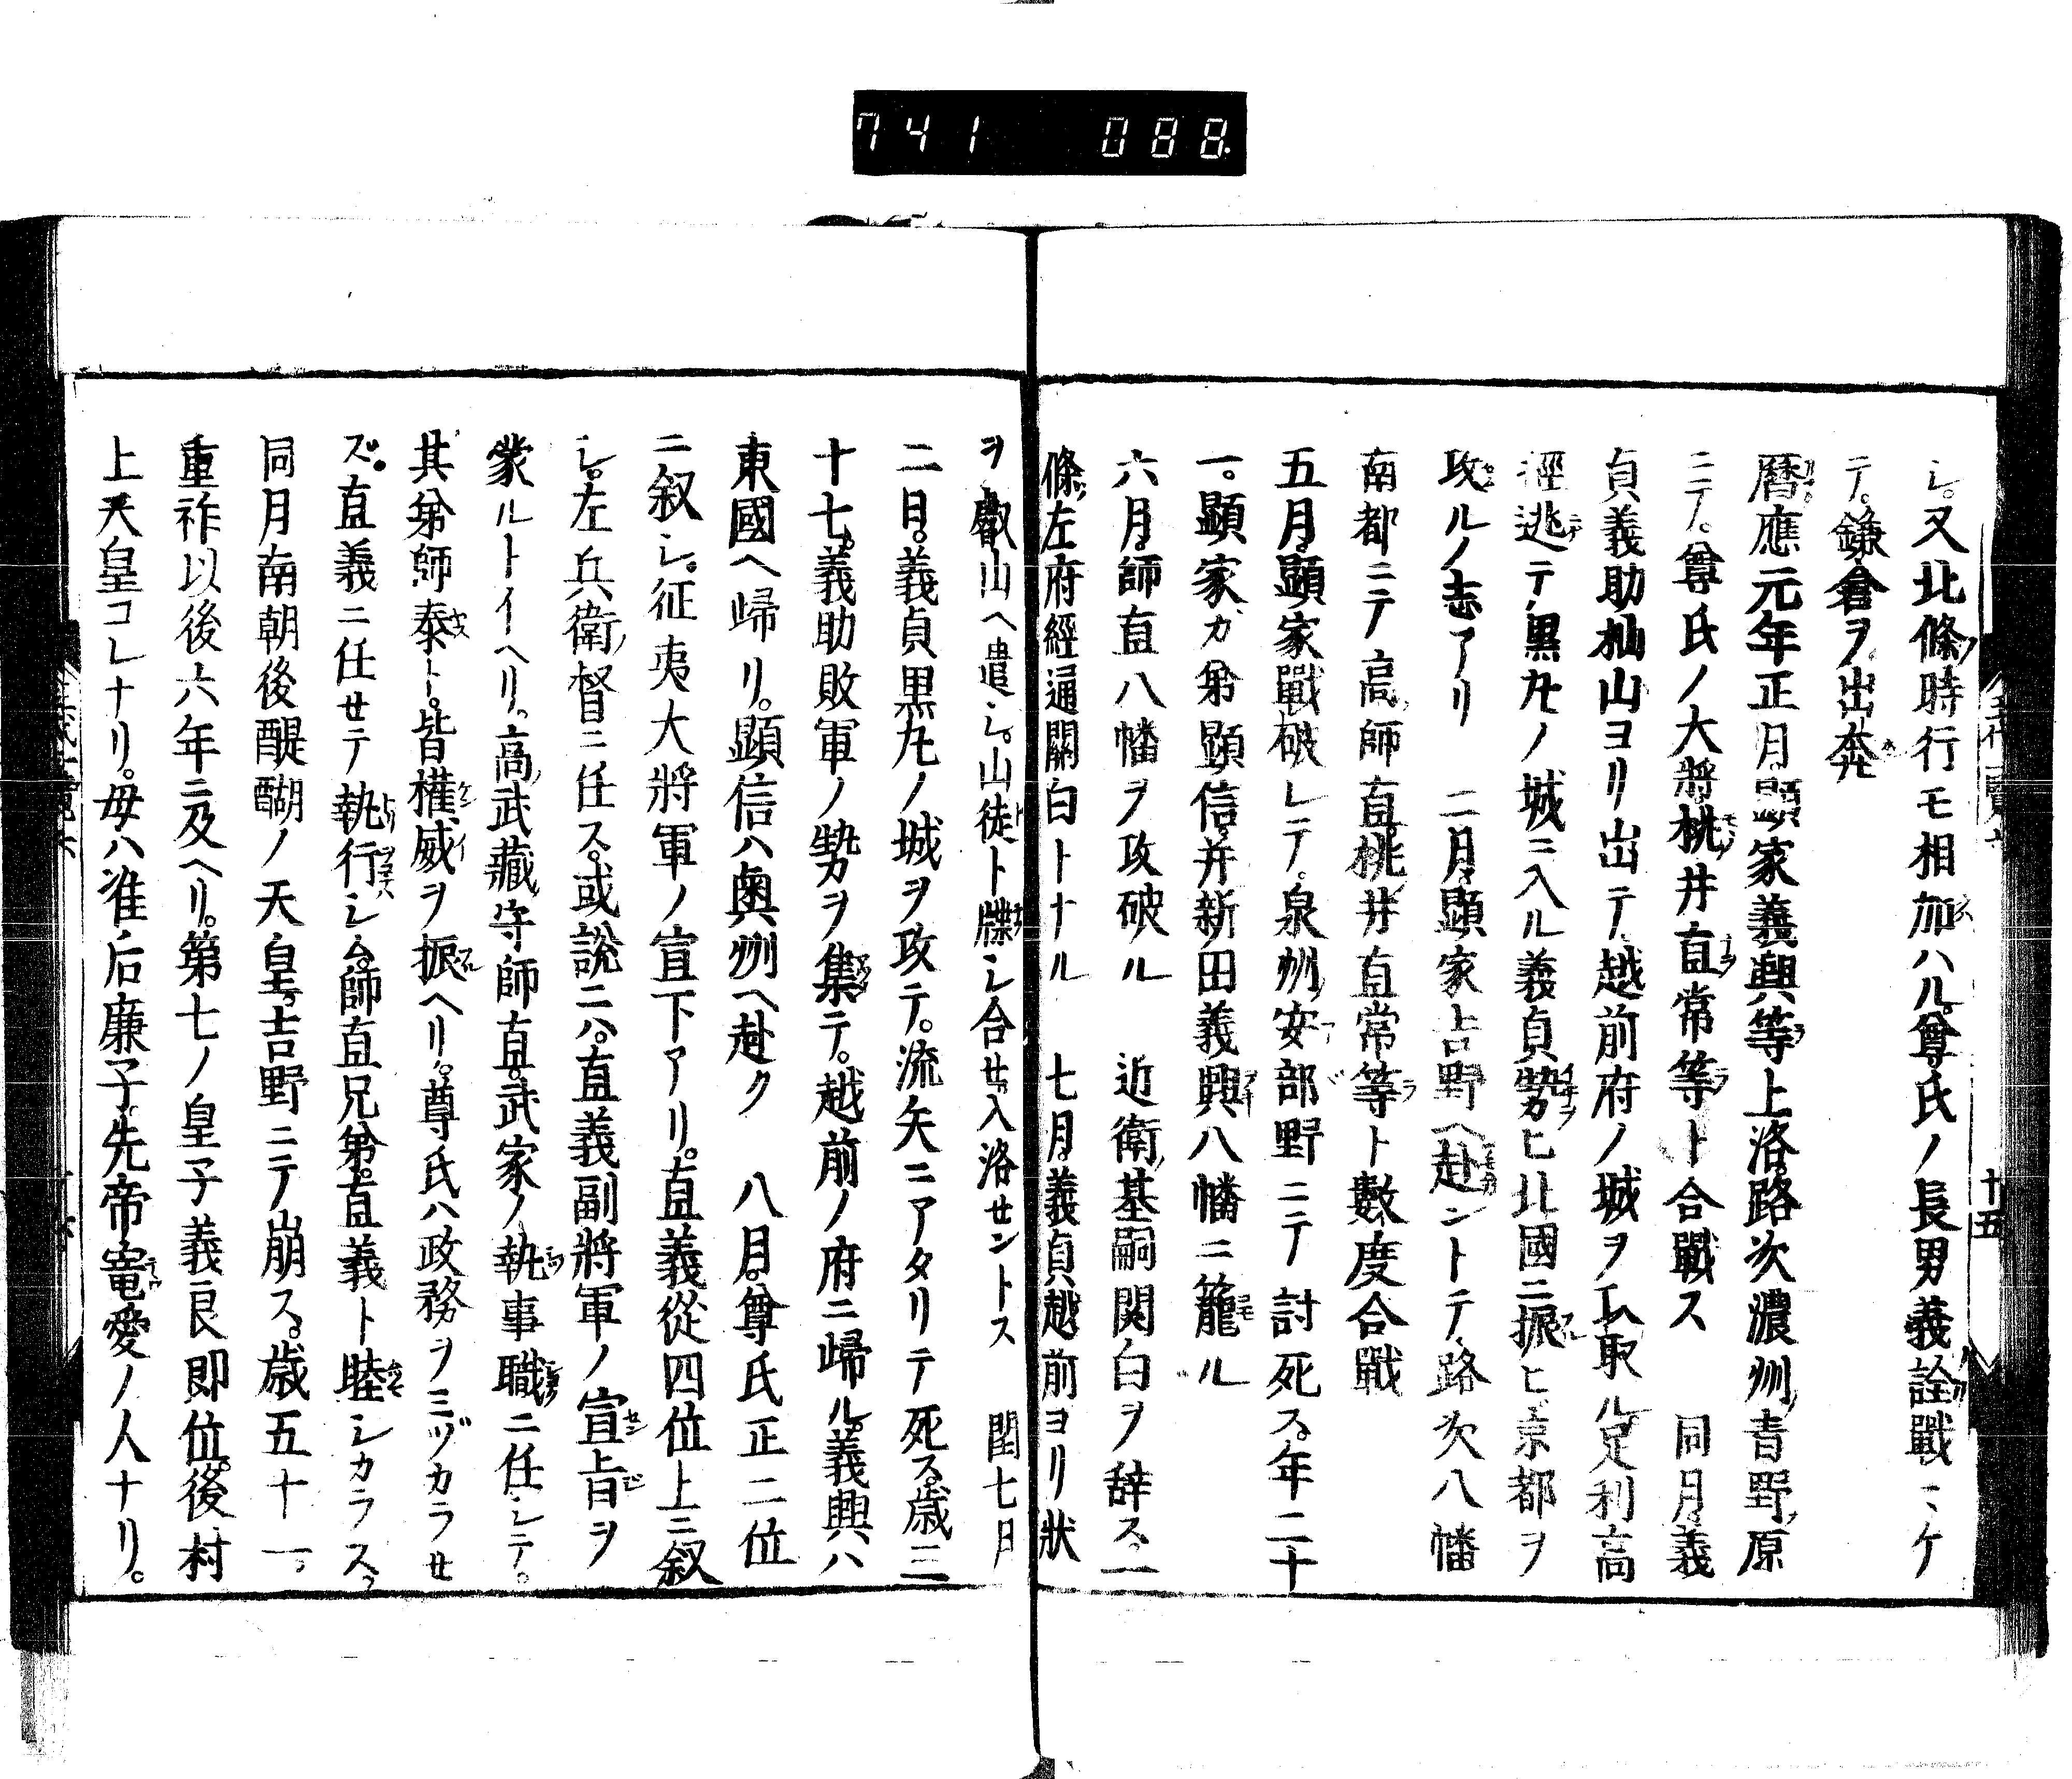 741 088
シ。又北條時行モ相加ハル。尊氏ノ長男義詮戰ニケ
テ。鎌倉ヲ出奔
曆應元年正月。顯家義興等上洛。路次濃州青野原
ニテ。尊氏ノ大將桃井直常等ト合戰ス 同月。義
貞義助杣山ヨリ出テ越前府ノ城ヲ取ル。足利高
經逃テ黒丸ノ城ニ入ル義貞勢ヒ北國ニ振ヒ京都ヲ
攻ルノ志アリ 二月。顯家吉野ヘ赴ントテ路次八幡
南都ニテ高師直桃井直常等ト數度合戰
五月。顯家戰破レテ。泉州安部野ニテ討死ス。年二十
一。顯家ガ弟顯信。并新田義興八幡ニ籠ル
六月。師直八幡ヲ攻破ル 近衛基嗣関白ヲ辞ス。一
條左府經通關白トナル 七月。義貞越前ヨリ狀
ヲ叡山ヘ遣シ。山徒ト牒シ合セ入洛セントス 閏七月
二日。義貞黒丸ノ城ヲ攻テ。流矢ニアタリテ死ス。歳三
十七。義助敗軍ノ勢ヲ集テ。越前ノ府ニ帰ル。義興ハ
東國ヘ帰リ。顯信ハ奧州ヘ赴ク 八月。尊氏正二位
ニ叙シ。征夷大將軍ノ宣下アリ。直義從四位上ニ叙
シ。左兵衛督ニ任ス。或說ニハ。直義副將軍ノ宣旨ヲ
蒙ルトイヘリ。高武藏守師直。武家ノ執事職ニ任シテ。
其弟師泰ト。皆權威ヲ振ヘリ。尊氏ハ政務ヲミヅカラセ
ズ。直義ニ任セテ執行シム。師直兄弟。直義ト睦シカラス。
同月南朝後醍醐ノ天皇。吉野ニテ崩ス。歳五十一。
重祚以後六年ニ及ヘリ。第七ノ皇子義良即位。後村
上天皇コレナリ。母ハ准后廉子。先帝寵愛ノ人ナリ。
十五